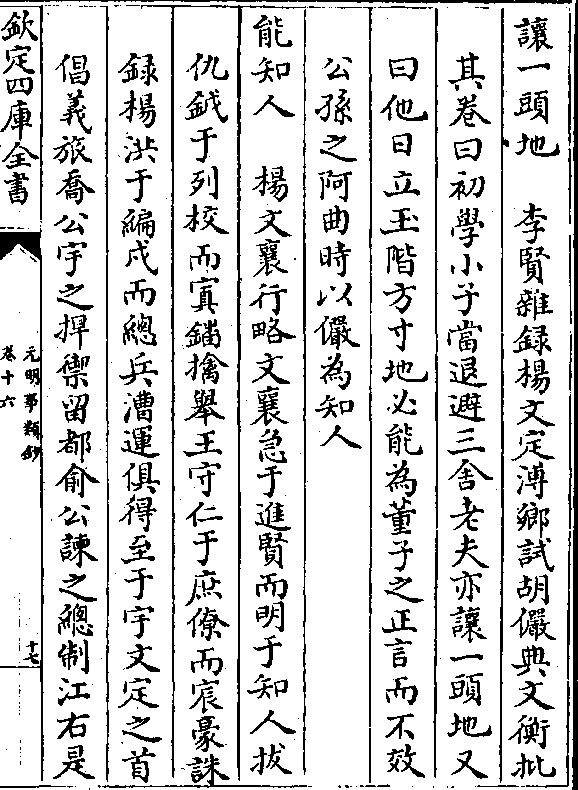 讓一頭地　李賢雜録楊文定溥鄉試胡儼典文衡批
其卷曰初學小子當退避三舍老夫亦讓一頭地又
曰他日立玉階方寸地必能為董子之正言而不效
公孫之阿曲時以儼為知人
能知人　楊文襄行略文襄急于進賢而明于知人拔
仇鉞于列校而寘鐇擒舉王守仁于庶僚而宸豪誅
録楊洪于編戍而總兵漕運俱得至于宇文定之首
倡義旅喬公宇之捍禦留都俞公諫之總制江右是
欽定四庫全書
元明事類鈔
卷十六
十七